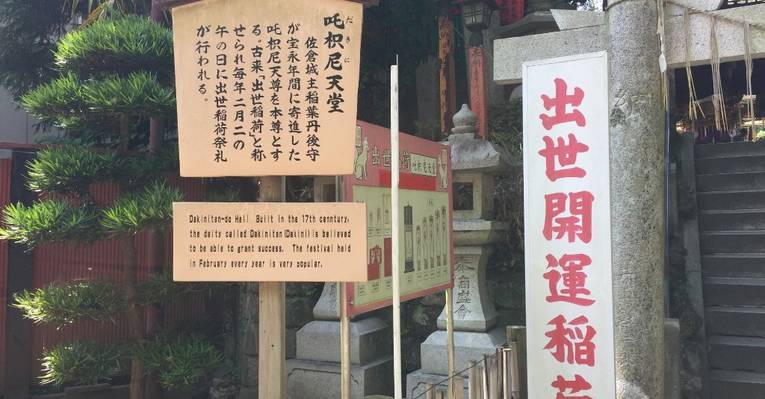 吒枳尼天堂
だきに
佐倉城主稲葉丹後守
が宝永年間に寄進した
吒枳尼天尊を本尊とす
る。古来「出世稲荷」と称
せられ毎年二月二の
午の日に出世稲荷祭礼
が行われる。
Dakiniten-do Hall Built in the 17th cenntury,
the deity called Dakiniten(Dakini)is believed
to be able to grant success. The festival held
in February every year is very popular.
出世稲荷
吒枳尼天堂
出世開運稲荷